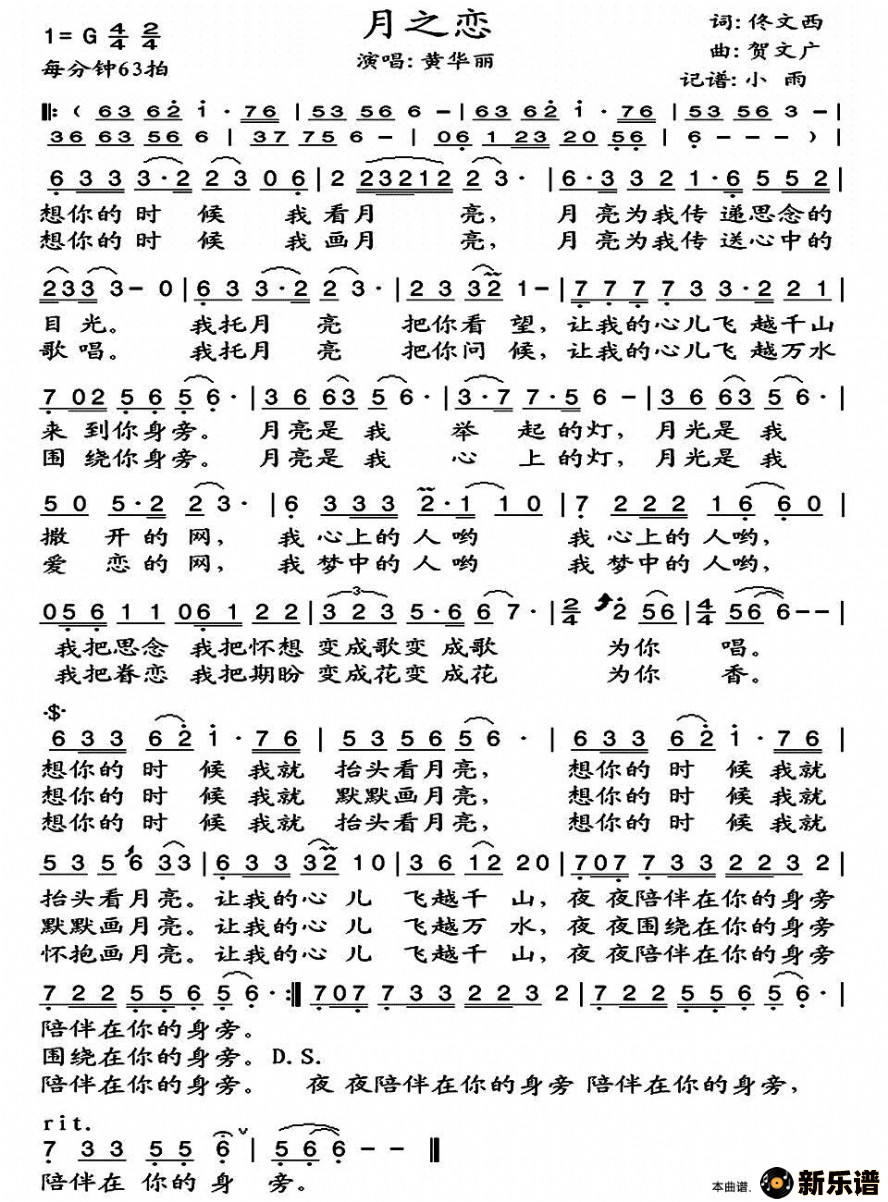 月之恋
1=G 4/4 2/4
每分钟63拍
演唱:黄华丽
词:佟文西
曲:贺文广
记谱:小雨
‖:( 63 62 i · 76 | 53 56 6 - | 63 62 i · 76 | 53 56 3 - |
36 63 56 6 | 37 75 6 - | 06 1 23 20 56 | 6 - - - ) |
6 3 3 3·2 2 3 0 6 | 2 23212 2 3· | 6·3 3 2 1·6 5 5 2 |
想你的时 候 我看月 亮, 月亮为我传递思念的
想你的时 候 我画月 亮, 月亮为我传送心中的
233 3- 0 | 6 3 3·2 2 3· | 2 3 32 1- | 7 7 7 7 3 3·2 2 1 |
目光。 我托月 亮 把你看望,让我的心儿飞越千山
歌唱。 我托月 亮 把你问候,让我的心儿飞越万水
7 02 5 6 5 6· | 3 6 63 5 6· | 3·7 7·5 6 - | 3 6 63 5 6· |
来到你身旁。 月亮是我 举 起的灯, 月光是我
围绕你身旁。 月亮是我 心 上的灯, 月光是我
5 0 5·2 2 3· | 6 3 3 3 2·1 1 0 | 7 2 2 2 1 6 6 0 |
撒 开的网, 我心上的人哟 我心上的人哟,
爱 恋的网, 我梦中的人哟 我梦中的人哟,
05 6 1 1 06 1 2 2 | 3 2 3 5·6 6 7· | 2/4 2 56 | 4/4 56 6 - - |
我把思念 我把怀想 变成歌变成歌 为你 唱。
我把眷恋 我把期盼 变成花变成花 为你 香。
·$·
6 3 3 6 2 i · 7 6 | 5 3 5 6 5 6· | 6 3 3 6 2 i· 7 6 |
想你的 时 候 我就 抬头看月亮, 想你的 时 候 我就
想你的 时 候 我就 默默画月亮, 想你的 时 候 我就
想你的 时 候 我就 抬头看月亮, 想你的 时 候 我就
5 3 5 6 33 | 6 3 3 32 10 | 3 6 12 20 | 707 7 3 3 2 2 3 2 |
抬头看月亮。让我的心 儿 飞越千 山,夜 夜陪伴在你的身旁
默默画月亮。让我的心 儿 飞越万 水,夜 夜围绕在你的身旁
怀抱画月亮。让我的心 儿 飞越千 山,夜 夜陪伴在你的身旁
7 2 2 5 5 6 5 6· :‖ 707 7 3 3 2 2 3 2 | 7 2 2 5 5 6 5 6· |
陪伴在你的身旁。
围绕在你的身旁。D.S.
陪伴在你的身旁。 夜 夜陪伴在你的身旁 陪伴在你的身旁,
rit.
7 3 3 5 5 6 | 5 6 6 - - ‖
陪伴在 你的 身 旁。
本曲谱. 新乐谱